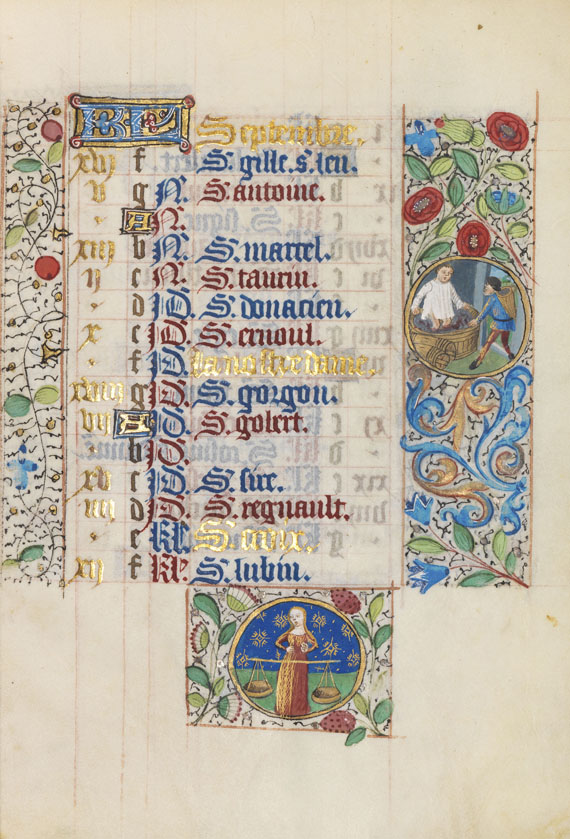 KL Septembre.
xvij f S. gille s. leu.
v g N. S. antoine.
. A N.
xiij b N. S. marcel.
ij c N. S. taurin.
. d N. S. donacien.
x e D. S. ernoul.
. f D. La nostre dame.
xviij g D. S. gorgon.
vij A D. S. golert.
. b D.
xv c D. S. sire.
iiij d D. S. regnault.
. e Kl. S. croix.
xij f Kl. S. lubin.